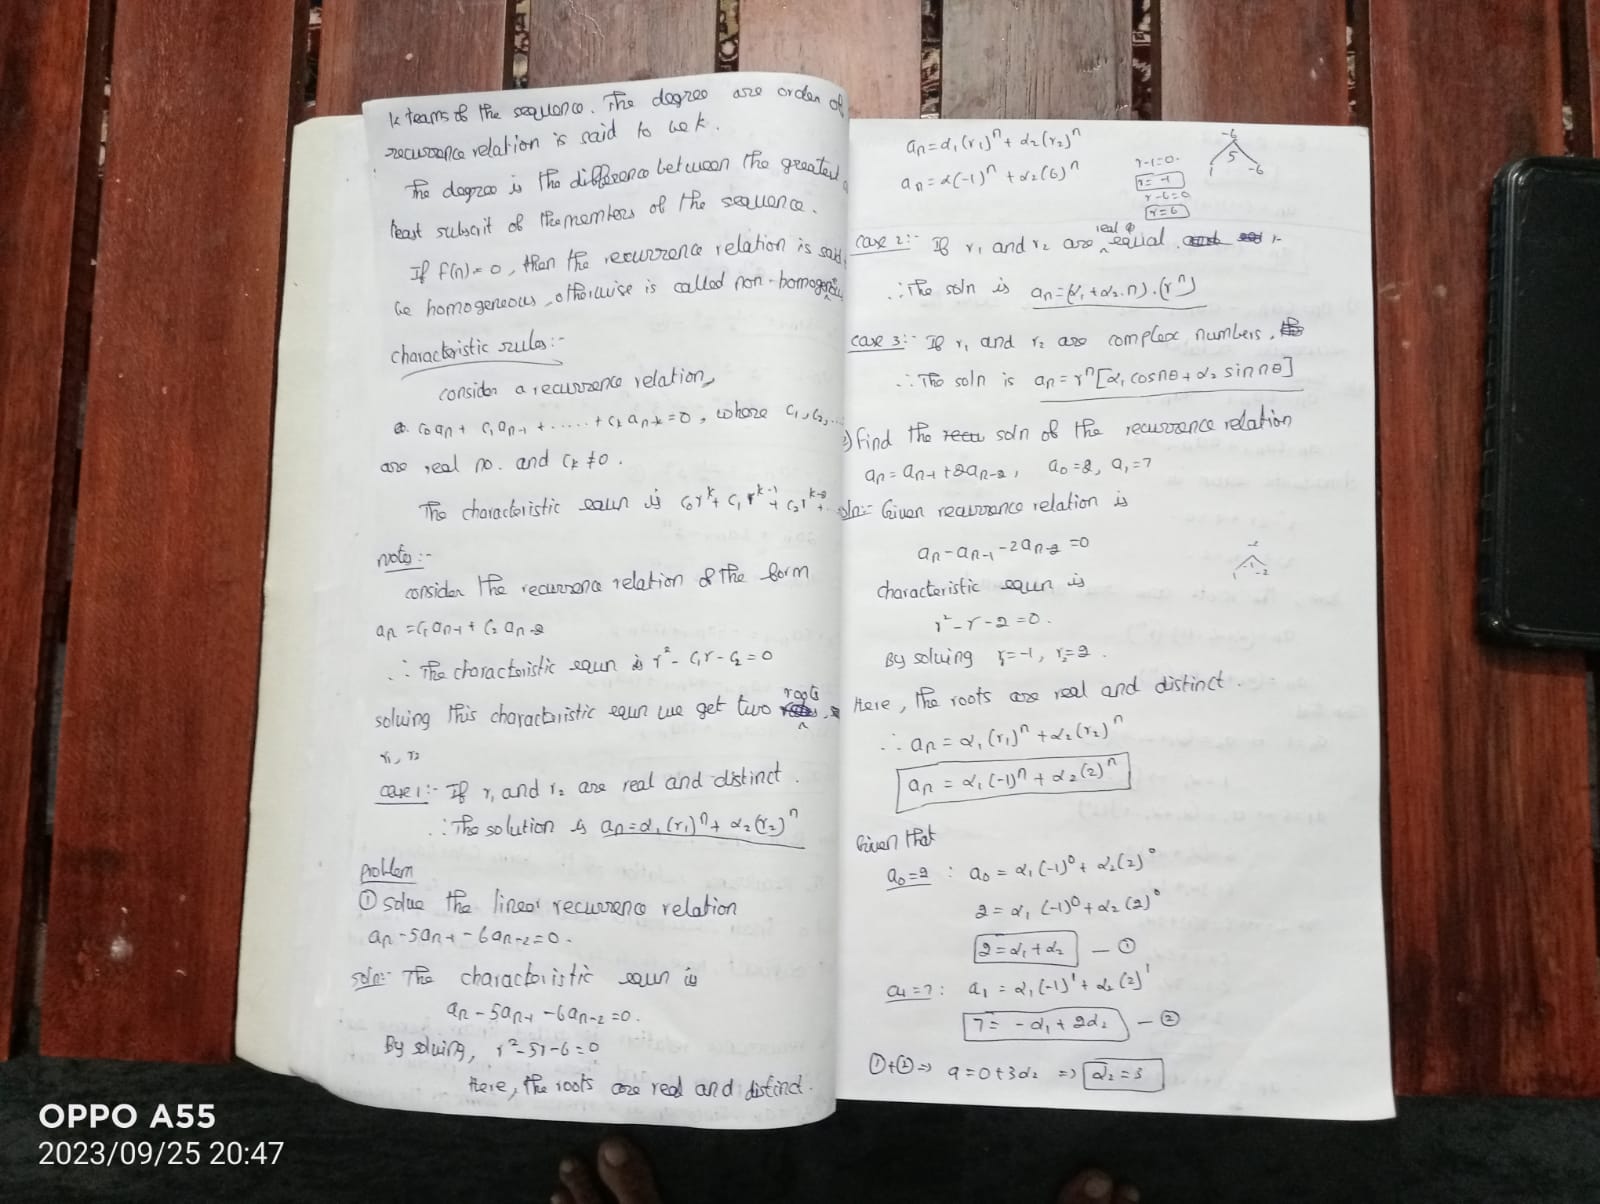 k teams of the sequence. The degree are order of
recurrence relation is said to be k.
The degree is the difference between the greatest
least subscrit of the members of the sequence.
If f(n)=0, then the recurrence relation is said
be homogeneous, otherwise is called non-homogeneous
characteristic rules:-
consider a recurrence relation,
c₀aₙ + c₁aₙ₋₁ + ..... + cₖaₙ₋ₖ = 0, where c₁, c₂, ...
are real no. and cₖ ≠ 0.
The characteristic equn is c₀rᵏ + c₁rᵏ⁻¹ + c₂rᵏ⁻² + ..
note:-
consider the recurrence relation of the form
aₙ = c₁aₙ₋₁ + c₂aₙ₋₂
∴ The characteristic equn is r² - c₁r - c₂ = 0
solving this characteristic equn we get two roots,
r₁, r₂
case 1:- If r₁ and r₂ are real and distinct.
∴ The solution is aₙ = α₁(r₁)ⁿ + α₂(r₂)ⁿ
problem
① solve the linear recurrence relation
aₙ - 5aₙ₋₁ - 6aₙ₋₂ = 0.
soln:- The characteristic equn is
aₙ - 5aₙ₋₁ - 6aₙ₋₂ = 0.
By solving, r² - 5r - 6 = 0
Here, the roots are real and distinct.
aₙ = α₁(r₁)ⁿ + α₂(r₂)ⁿ
aₙ = α(-1)ⁿ + α₂(6)ⁿ
r-1=0.
r=-1
r-6=0
r=6
-6
5
1 -6
case 2:- If r₁ and r₂ are real & equal.
∴ The soln is aₙ = (α₁ + α₂.n).(rⁿ)
case 3:- If r₁ and r₂ are complex numbers.
∴ The soln is aₙ = rⁿ[α₁ cosnθ + α₂ sin nθ]
2) Find the soln of the recurrence relation
aₙ = aₙ₋₁ + 2aₙ₋₂, a₀ = 2, a₁ = 7
soln:- Given recurrence relation is
aₙ - aₙ₋₁ - 2aₙ₋₂ = 0
-2
-1
1 -2
characteristic equn is
r² - r - 2 = 0.
By solving r₁ = -1, r₂ = 2.
Here, the roots are real and distinct.
∴ aₙ = α₁(r₁)ⁿ + α₂(r₂)ⁿ
aₙ = α₁(-1)ⁿ + α₂(2)ⁿ
Given that
a₀=2 : a₀ = α₁(-1)⁰ + α₂(2)⁰
2 = α₁(-1)⁰ + α₂(2)⁰
2 = α₁ + α₂ — ①
a₁=7: a₁ = α₁(-1)¹ + α₂(2)¹
7 = -α₁ + 2α₂ — ②
①+② ⇒ 9 = 0 + 3α₂ ⇒ α₂ = 3
OPPO A55
2023/09/25 20:47